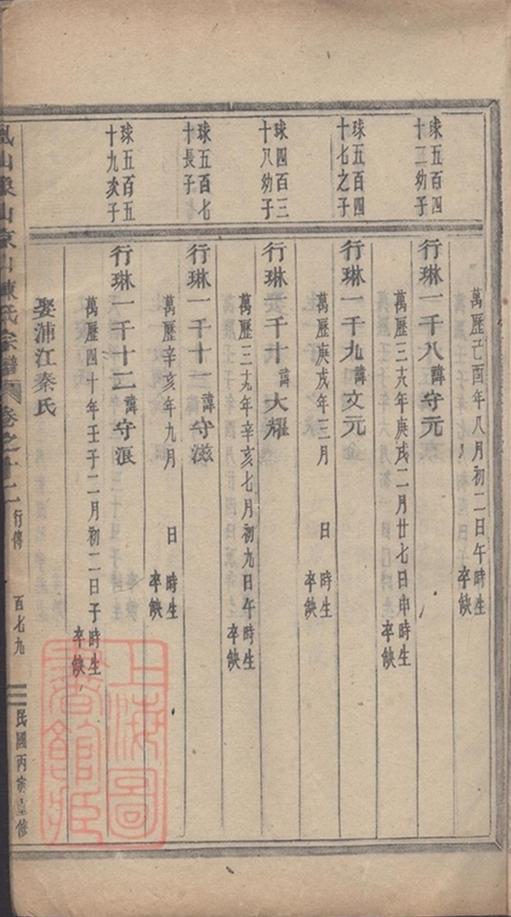 萬歷己酉年八月初二日午時生
卒缺
球五百四
十二幼子
行琳一千八諱守元
萬歷三六年庚戌二月廿七日申時生
卒缺
球五百四
十七之子
行琳一千九諱文元
萬歷庚戌年三月 日 時生
卒缺
球四百三
十八幼子
行琳一千十諱大耀
萬歷三九年辛亥七月初九日午時生
卒缺
球五百七
十長子
行琳一千十一諱守滋
萬歷辛亥年九月 日 時生
卒缺
球五百五
十九次子
行琳一千十二諱守泿
萬歷四十年壬子二月初二日子時生
卒缺
娶蒲江秦氏
鳳山象山京山陳氏宗譜 卷之十二 行傳 百七九 民國丙寅重修
上海圖
書館藏